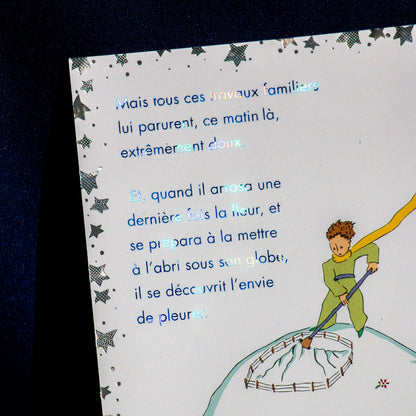 Mais tous ces travaux familiers
lui parurent, ce matin là,
extrêmement doux.
Et, quand il arrosa une
dernière fois la fleur, et
se prépara à la mettre
à l'abri sous son globe,
il se découvrit l'envie
de pleurer.